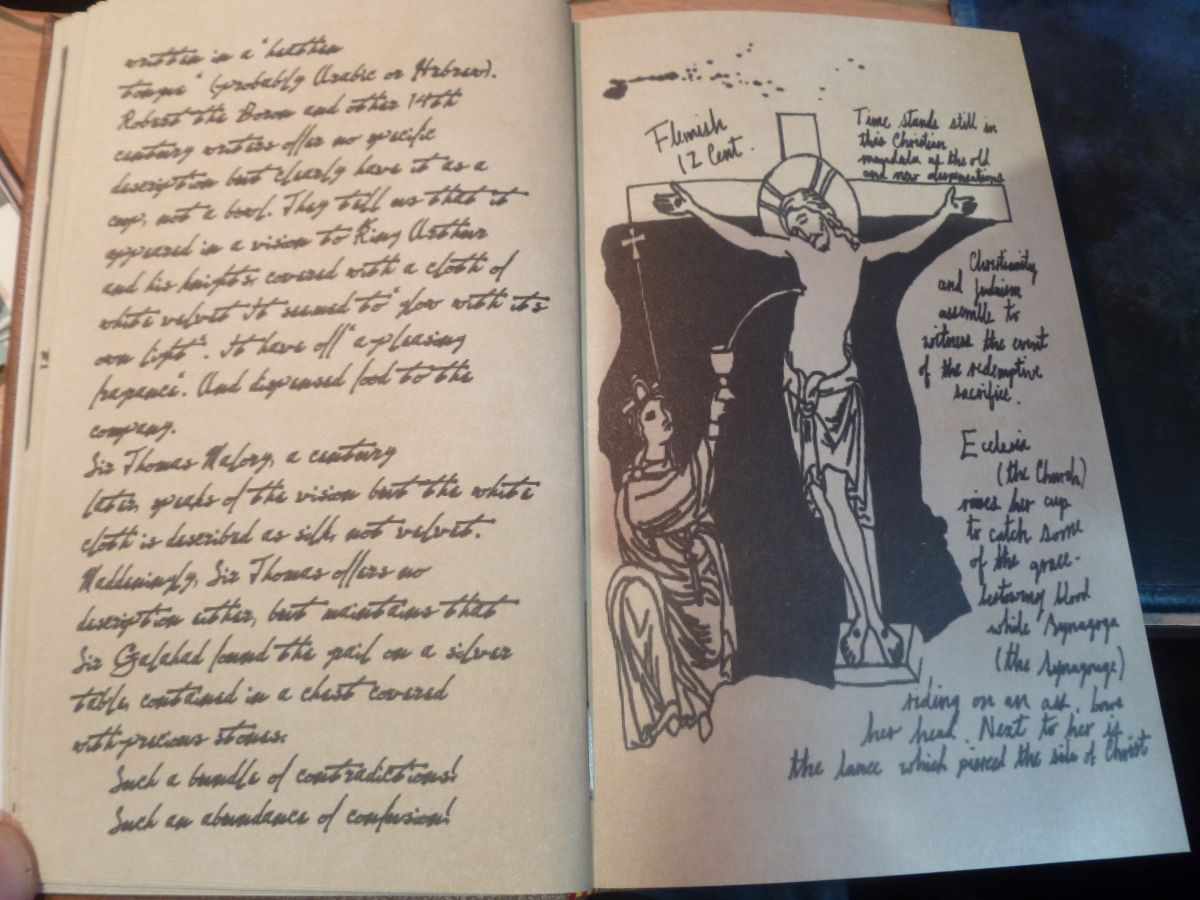 written in a "heathen
tongue" (probably Arabic or Hebrew).
Robert the Boron and other 14th
century writers offer no specific
description but clearly have it as a
cup, not a bowl. They tell us that it
appeared in a vision to King Arthur
and his knights, covered with a cloth of
white velvet It seemed to "glow with it's
own light". It have off "a pleasing
fragance". And dispensed food to the
company.
Sir Thomas Malory, a century
later, speaks of the vision but the white
cloth is described as silk, not velvet.
Maddeningly, Sir Thomas offers no
description either, but maintains that
Sir Galahad found the grail on a silver
table, contained in a chest covered
with precious stones.
Such a bundle of contradictions!
Such an abundance of confusion!
Flemish
12 Cent.
Time stands still in
this Christian
mandala of the old
and new dispensations
Christianity
and Judaism
assemble to
witness the event
of the redemptive
sacrifice.
Eclesia
(the Church)
rises her cup
to catch some
of the grace-
bestowing blood
while Synagoga
(the Synagouge)
riding on an ass, bows
her head. Next to her is
the lance which pierced the side of Christ